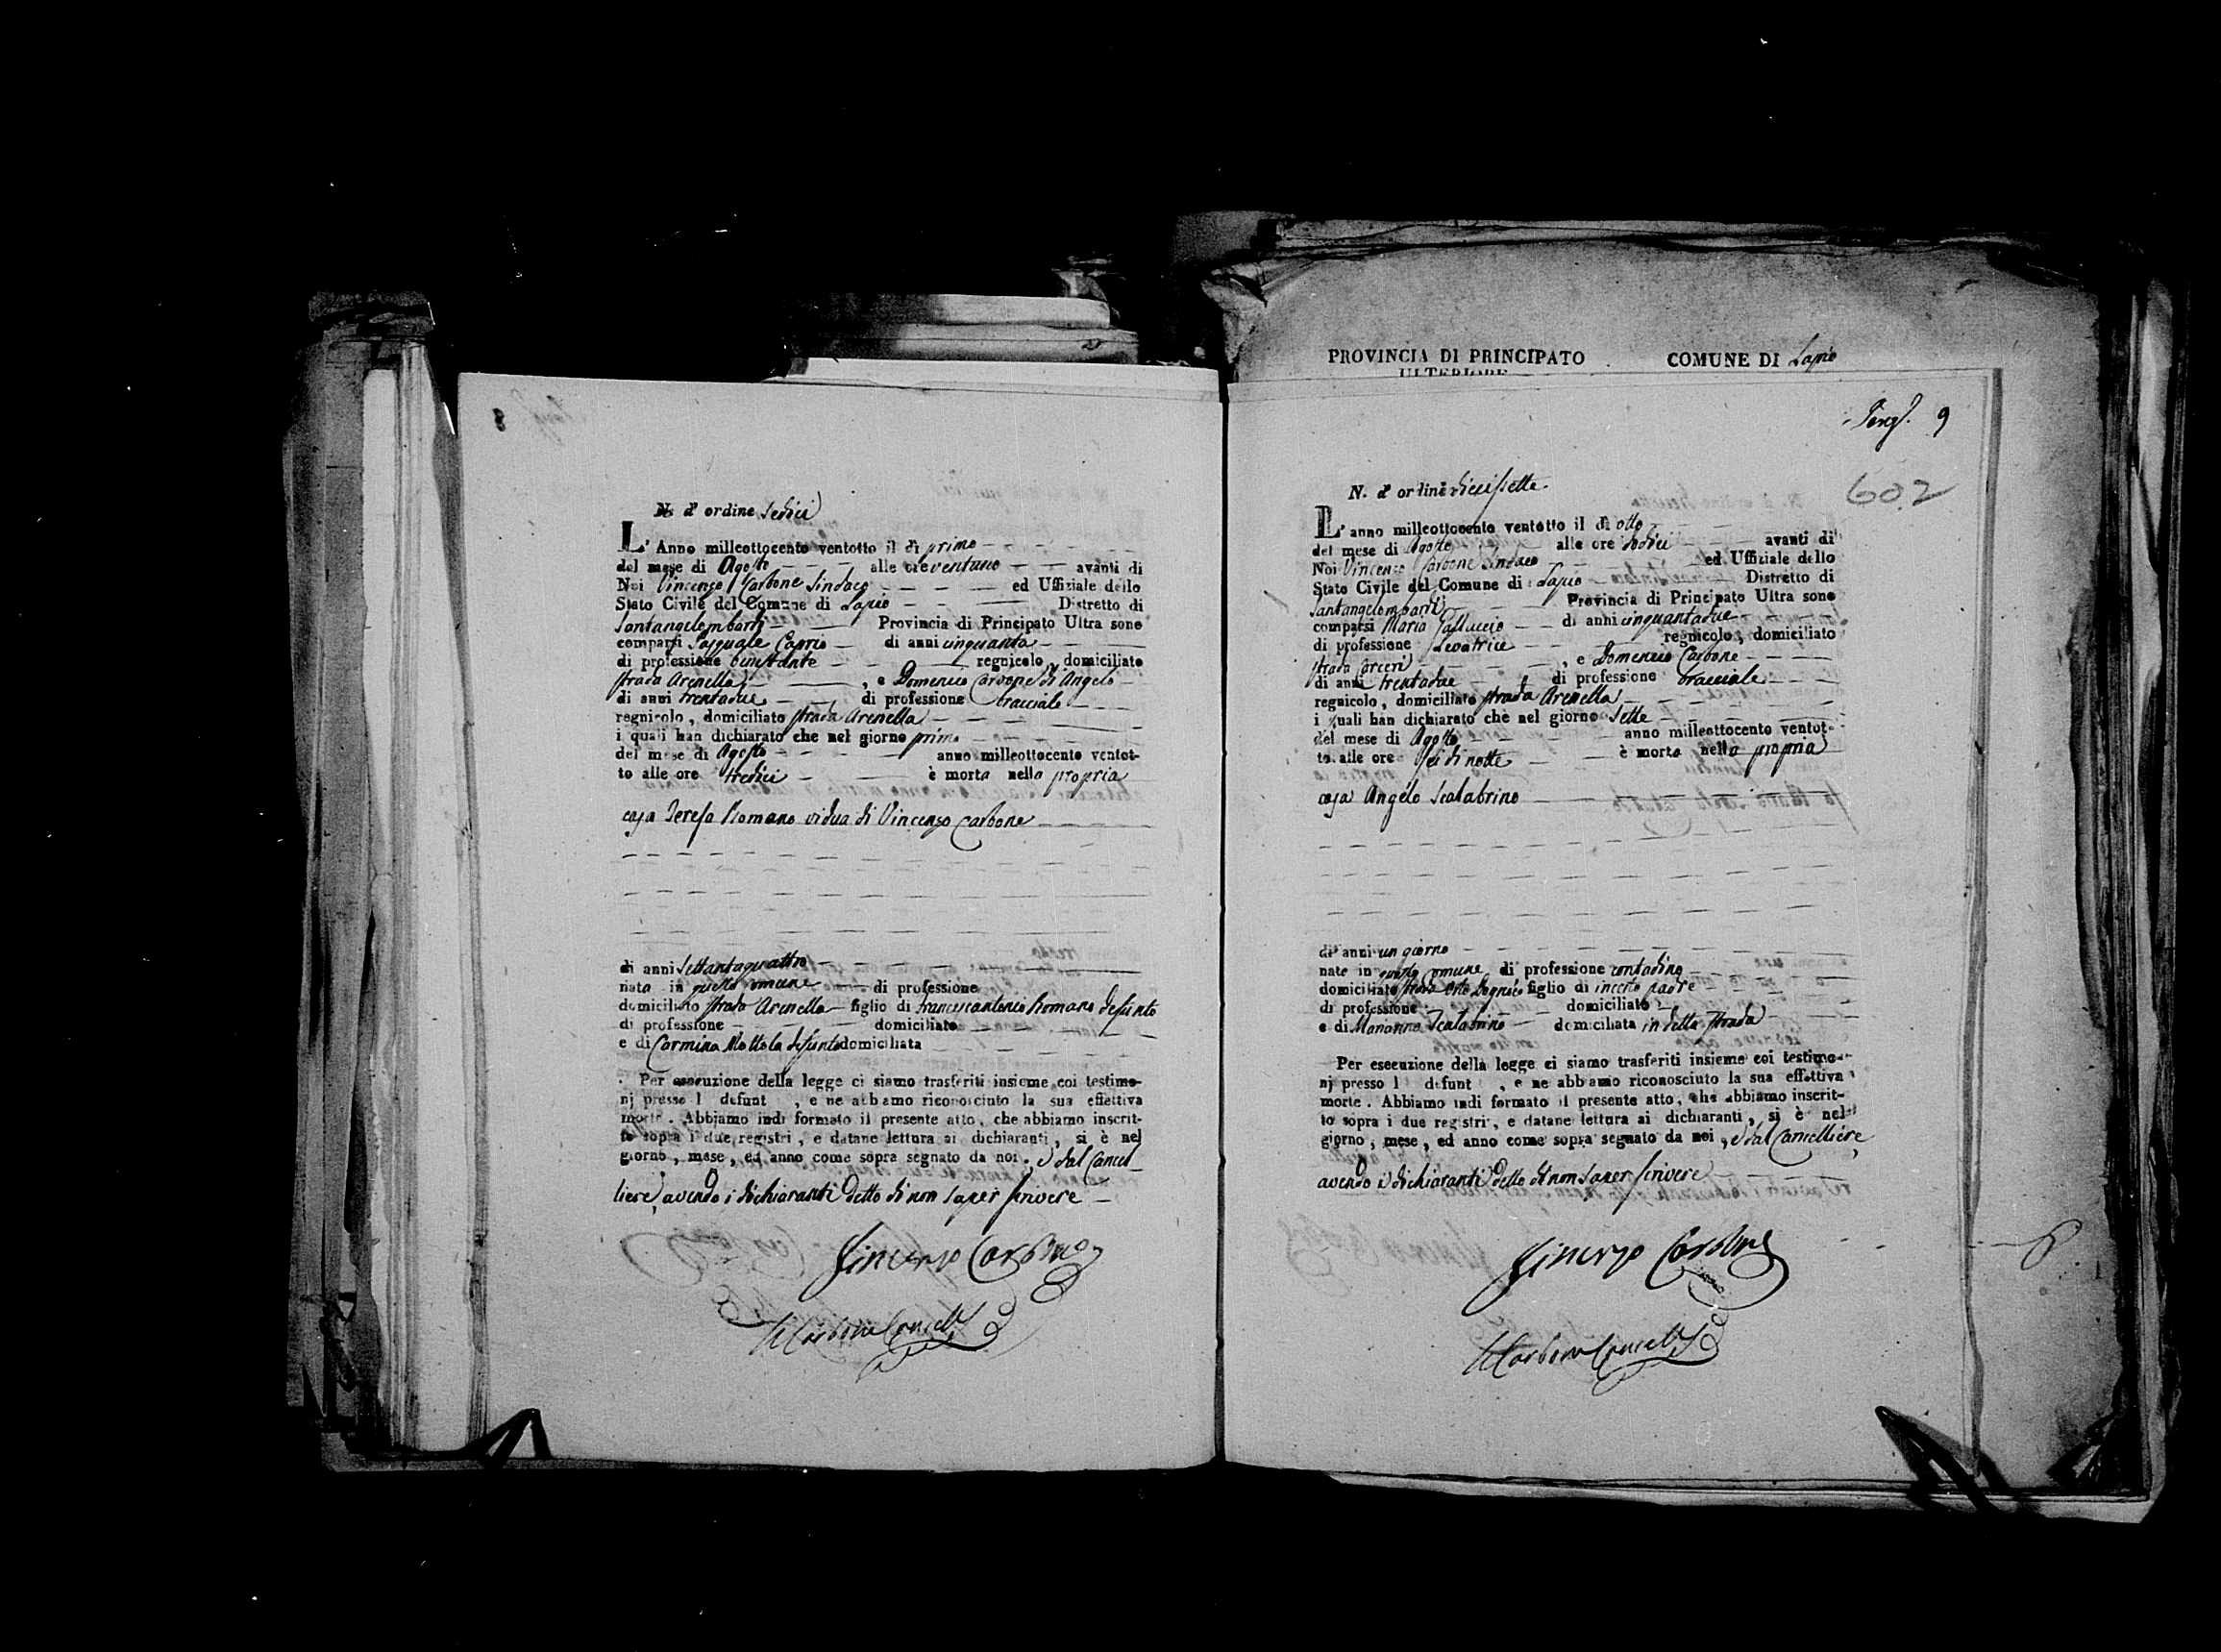 N. d' ordine Sedici
L' Anno milleottocento ventotto il dì primo
del mese di Agosto alle ore ventuno avanti di
Noi Vincenzo Carbone Sindaco ed Uffiziale dello
Stato Civile del Comune di Lapio Distretto di
Santangelombardi Provincia di Principato Ultra sono
comparsi Pasquale Caprio di anni cinquanta
di professione benestante regnicolo, domiciliato
strada Arenella, e Domenico Carbone di Angelo
di anni trentadue di professione bracciale
regnicolo, domiciliato strada Arenella
i quali han dichiarato che nel giorno primo
del mese di Agosto anno milleottocento ventot-
to alle ore tredici è morta nella propria
casa Teresa Romano vidua di Vincenzo Carbone
di anni Settantaquattro
nata in questo comune di professione
domiciliato strada Arenella figlio di Francescantonio Romano defunto
di professione domiciliato
e di Carmina Mottola defunta domiciliata
Per esecuzione della legge ci siamo trasferiti insieme coi testimo-
nj presso l defunt , e ne abbiamo riconosciuto la sua effettiva
morte. Abbiamo indi formato il presente atto, che abbiamo inscrit-
to sopra i due registri, e datane lettura ai dichiaranti, si è nel
giorno, mese, ed anno come sopra segnato da noi, e dal Cancel-
liere, avendo i dichiaranti detto di non saper scrivere
Vincenzo Carbone
Carbone Cancell
PROVINCIA DI PRINCIPATO COMUNE DI Lapio
ULTERIORE
9
602
N. d' ordine diecisette
L' anno milleottocento ventotto il dì otto
del mese di Agosto alle ore dodici avanti di
Noi Vincenzo Carbone Sindaco ed Uffiziale dello
Stato Civile del Comune di Lapio Distretto di
Santangelombardi Provincia di Principato Ultra sono
comparsi Maria Galluccio di anni cinquantadue
di professione Levatrice regnicolo, domiciliato
strada Carceri, e Domenico Carbone
di anni trentadue di professione bracciale
regnicolo, domiciliato strada Arenella
i quali han dichiarato che nel giorno Sette
del mese di Agosto anno milleottocento ventot-
to alle ore sei di notte è morto nella propria
casa Angelo Scalabrino
di anni un giorno
nato in questo comune di professione contadino
domiciliato strada figlio di incerto padre
di professione domiciliato
e di Marianna Scalabrino domiciliata in detta strada
Per esecuzione della legge ci siamo trasferiti insieme coi testimo-
nj presso l defunt , e ne abbiamo riconosciuto la sua effettiva
morte. Abbiamo indi formato il presente atto, che abbiamo inscrit-
to sopra i due registri, e datane lettura ai dichiaranti, si è nel
giorno, mese, ed anno come sopra segnato da noi, e dal Cancelliere,
avendo i dichiaranti detto di non saper scrivere
Vincenzo Carbone
Carbone Cancell